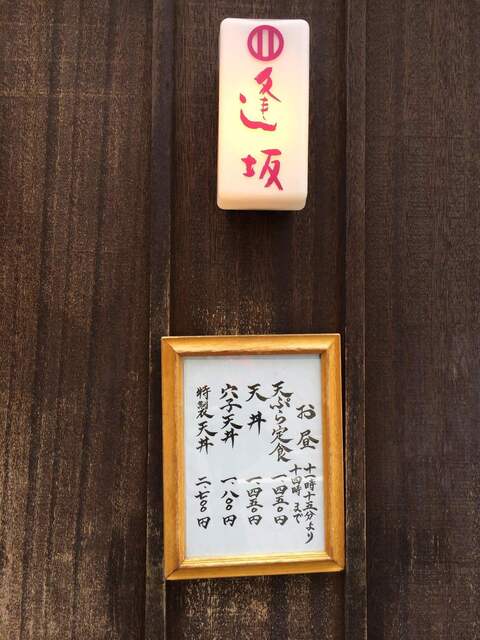 逢坂
お昼
十一時十五分より
十四時まで
天ぷら定食 一、四五〇円
天丼 一、四五〇円
穴子天丼 一、八〇〇円
特製天丼 二、七〇〇円